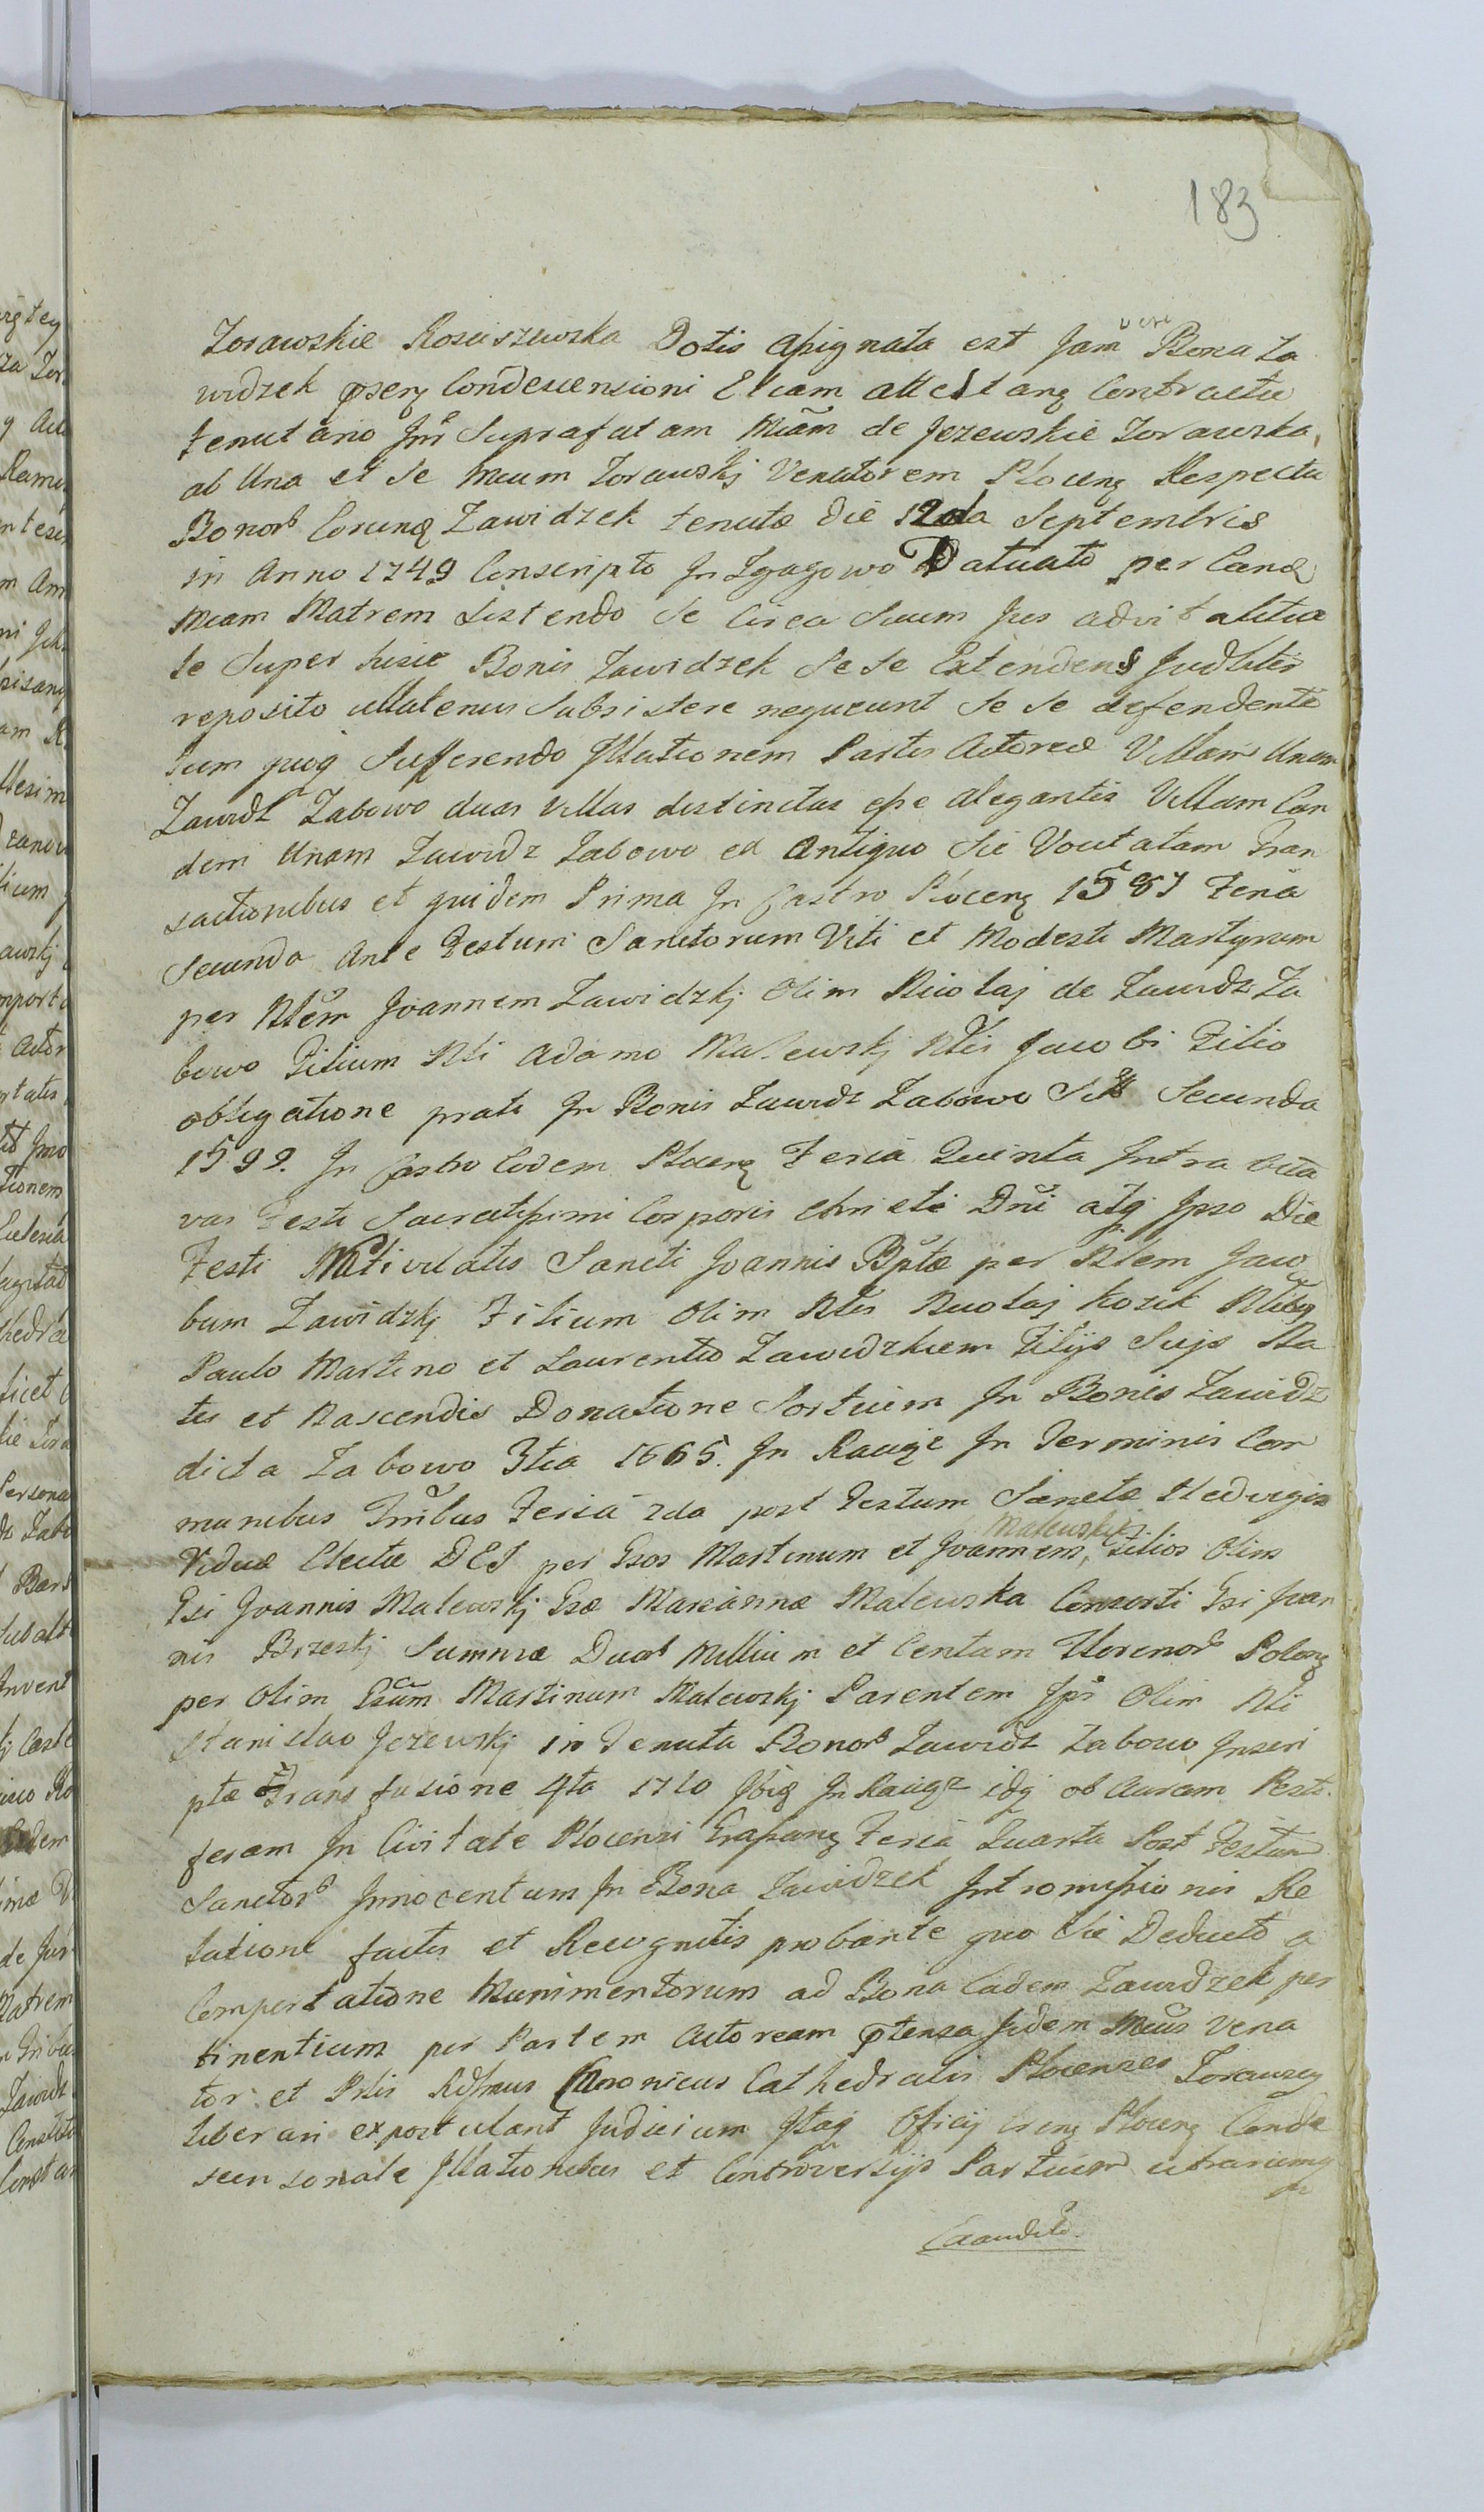 183
Zorawskie Rosciszewska Dotis assignata est Jam vero Bona Za
widzek pseng Condescensioni Etiam attestang Contractu
tenutario Inr Suprafatam Mcam de Jezewskie Zorawska,
ab Una et Se Mcum Zorawskj Venatorem Ploceng Respectu
Bonorb Eorundq Zawidzek tenutæ die 12da Septembris
in Anno 1749 Conscripto In Zgagowo Datuato per Eand
Mcam Matrem Sistendo Se Circa Suum Jus advitalitia
le Super hisce Bonis Zawidzek Se Se Extendens Judltis
reposito ullatenus Subsistere nequeunt Se Se defendente
tum quoq Sufferendo Illationem Partis Actoreæ Villam Unam
Zawidz Zabowo duas Villas distinctas esse alegantis Villam Ean
dem Unam Zawidz Zabowo ex Antiquo Sic Vocitatam Tran
sactionibus et quidem Prima In Castro Ploceng 1587 Feria
Secunda Ante Festum Sanctorum Viti et Modesti Martyrum
per Nlem Joannem Zawidzkj Olim Nicolaj de Zawidz Za
bowo Filium Nli Adamo Malewskj Nlis Jacobi Filio
obligatione prati In Bonis Zawidz Zabowo Secunda
1599. In Castro Eodem Ploceng Feria Quinta Intra Octa
vas Festi Sacratissimi Corporis Christi Dni atq Ipso Die
Festi Nativitatis Sancti Joannis Bptæ per Nlem Jaco
bum Zawidzkj Filium Olim Nlis Nicolaj Kozik Nlibq
Paulo Martino et Laurentio Zawidzkiem Filijs Suis Na
tis et Nascendis Donatione Sortium In Bonis Zawidz
dicta Zabowo 3tia 1665. In Raciąż In Terminis Com
munibus Tribus Feria 2da post Festum Sanctæ Hedvigis
Viduæ Electæ DEI per Gsos Martinum et Joannem, Malewskie Filios Olim
Gsi Joannis Malewskj Gsæ Mariannæ Malewska Consorti Gsi Joan
nis Brzeskj Summæ Duorb Millium et Centum Florenorb Polong
per Olim Gsum Martinum Malewskj Parentem Ips Olim Nli
Stanislao Jezewskj in Tenuta Bonorb Zawidz Zabowo Inscri
ptæ Transfusione 4ta 1710 Ibiq In Raciąż idq ob Auram Pesti
feram In Civitate Plocensi Grassang Feria Quarta Post Festum
Sanctorb Innocentum In Bona Zawidzek Intromissionis Re
latione factis et Recognitis probante quo Sic Deducto a
Comportatione Munimentorum ad Bona Eadem Zawidzek per
tinentium per Partem Actoream ptensa Iidem Mcus Vena
tor et Prlis Rdsmus Canonicus Cathedralis Plocenses Zorawscy
liberari expostulant Judicium Itaq Officij Ploceng Conde
scensonale Illationibus et Controversijs Partium utrariumq
Exaudito